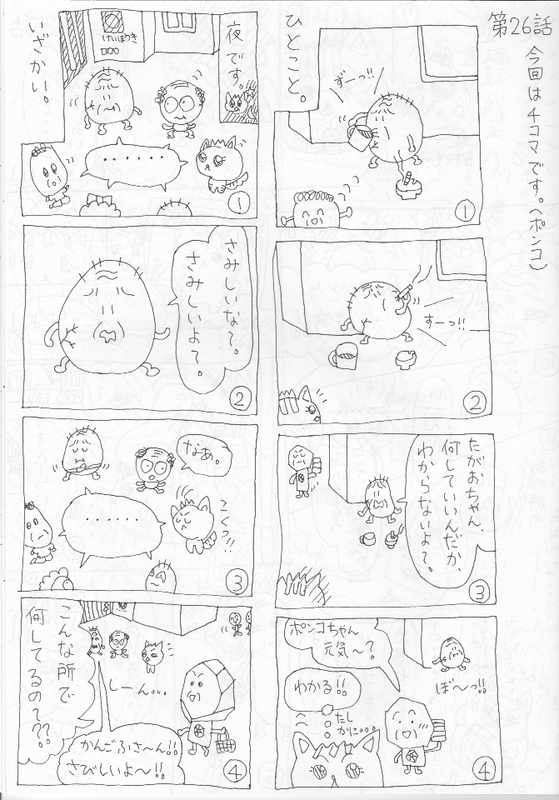 第26話
今回は4コマです。(ポンコ)
ひとこと。
ずーっ!!
①
すーっ!!
②
たがおちゃん、
何していいんだか、
わからないよ〜。
③
ポンコちゃん
元気〜?
わかる!!
たし
かに…。
ぼ〜っ!!
④
いざかい。
夜です。
けいぼうき
……
①
さみしいな〜。
さみしいよ〜。
②
なあ。
……
こくっ!!
③
こんな所で
何してるの〜??
しーん…
かんごふさ〜ん!!
さびしいよ〜!!
④